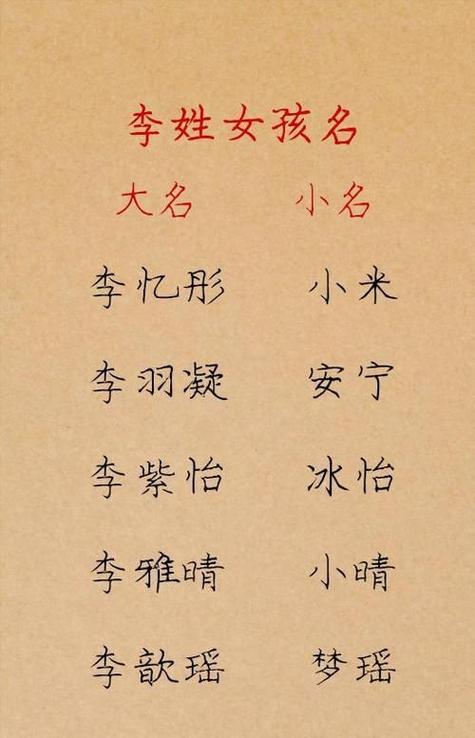 李姓女孩名
大名 小名
李忆彤 小米
李羽凝 安宁
李紫怡 冰怡
李雅晴 小晴
李歆瑶 梦瑶